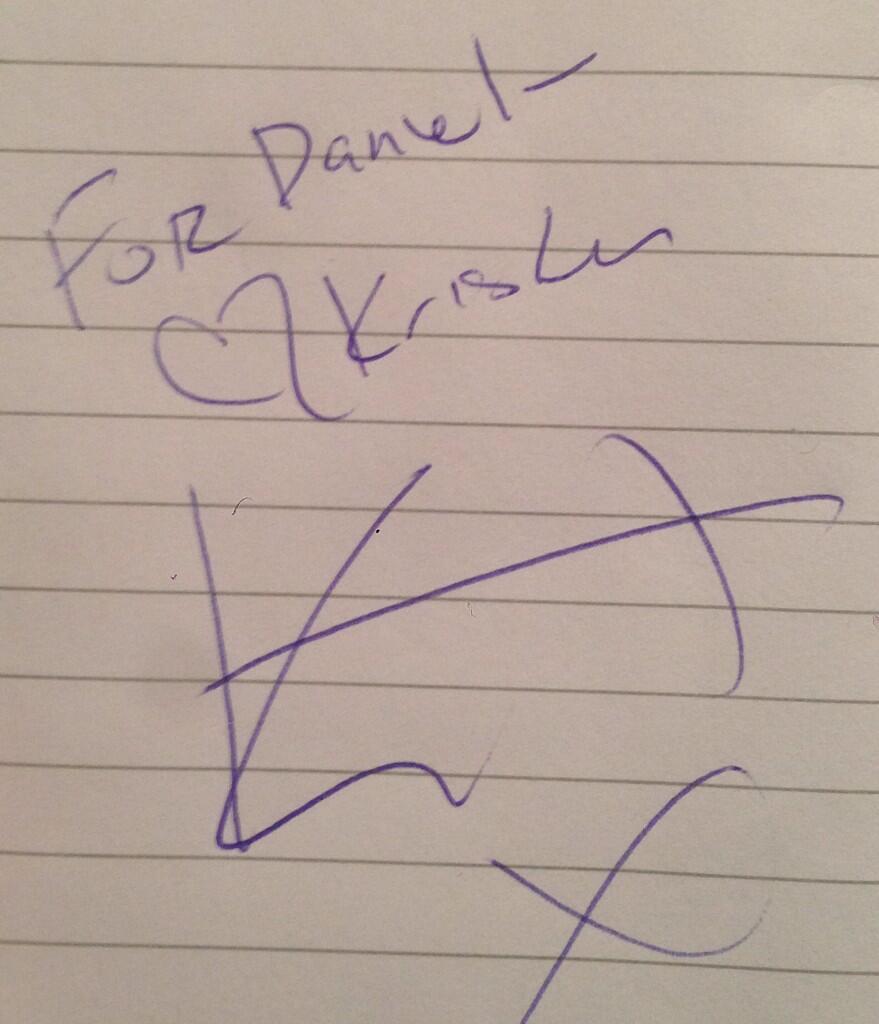 For Daniel-
♡ Kristen
X